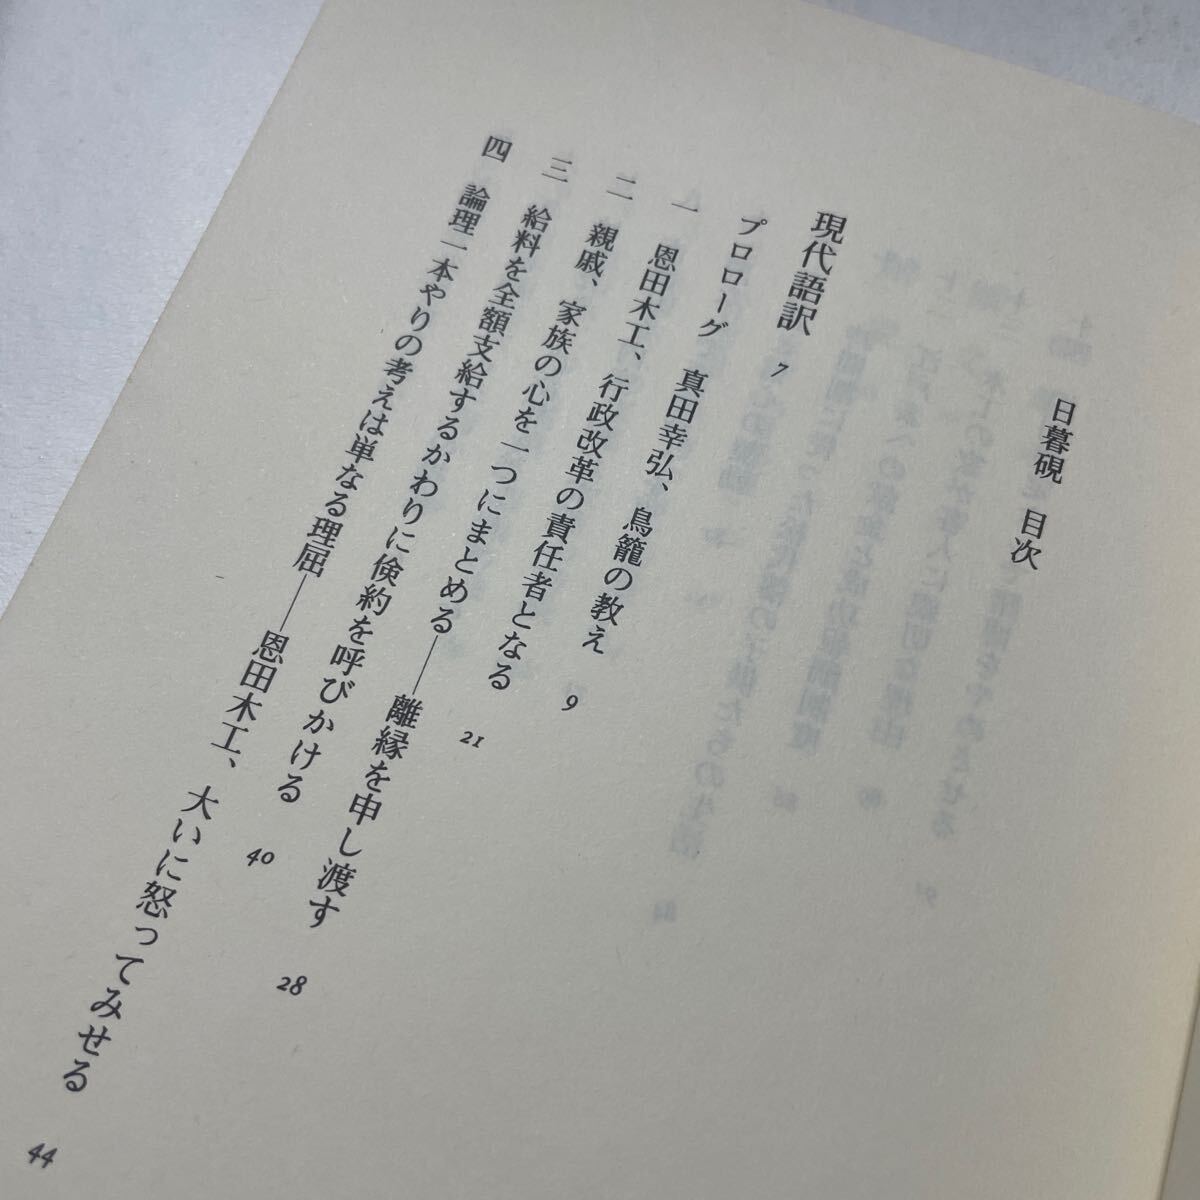 日暮硯 目次
現代語訳 7
プロローグ 真田幸弘、鳥籠の教え 9
一 恩田木工、行政改革の責任者となる 21
二 親戚、家族の心を一つにまとめる――離縁を申し渡す 28
三 給料を全額支給するかわりに倹約を呼びかける 40
四 論理一本やりの考えは単なる理屈――恩田木工、大いに怒ってみせる 44